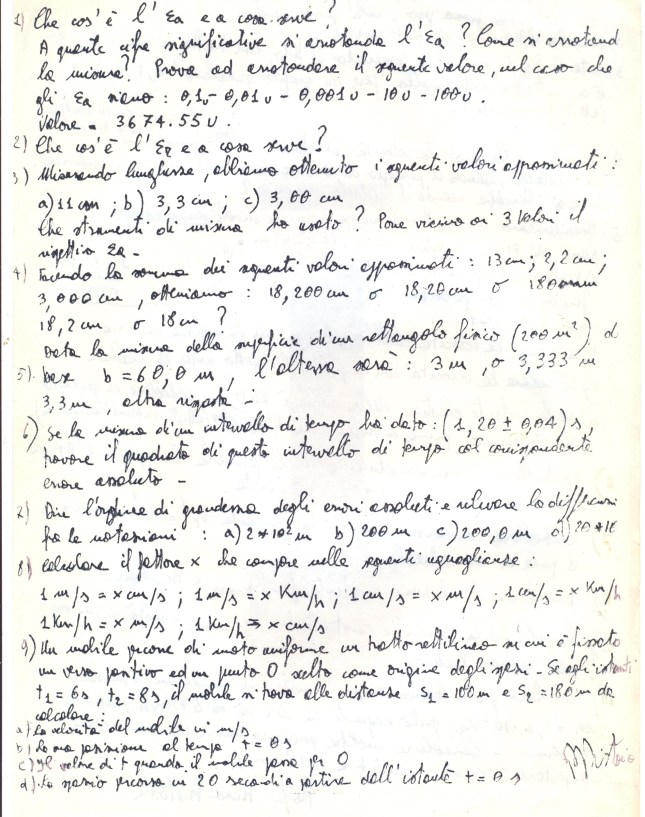 1) Che cos'è l'Ea e a cosa serve?
A quante cifre significative si arrotonda l'Ea? Come si arrotond
la misura? Prova ad arrotondare il seguente valore, nel caso che
gli Ea siano: 0,1u - 0,01u - 0,001u - 10u - 100u.
Valore = 3674.55u.
2) Che cos'è l'Er e a cosa serve?
3) Misurando lunghezze, abbiamo ottenuto i seguenti valori approssimati:
a) 11 cm; b) 3,3 cm; c) 3,00 cm
Che strumenti di misura ho usato? Pone vicino ai 3 valori il
rispettivo Ea -
4) Facendo la somma dei seguenti valori approssimati: 13 cm; 2,2 cm;
3,000 cm, otteniamo: 18,200 cm o 18,20 cm o 180 mm
18,2 cm o 18 cm?
Data la misura della superficie di un rettangolo fisico (200 m²) d
5). base b = 60,0 m, l'altezza sarà: 3 m, o 3,333 m
3,3 m, altra risposta -
6) Se la misura d'un intervallo di tempo ha dato: (1,20 ± 0,04) s,
trovare il quadrato di questo intervallo di tempo col corrispondente
errore assoluto -
7) Dire l'ordine di grandezza degli errori assoluti e rilevare la differenza
fra le notazioni: a) 2*10² m b) 200 m c) 200,0 m d) 20*10
8) Calcolare il fattore x che compare nelle seguenti uguaglianze:
1 m/s = x cm/s; 1 m/s = x Km/h; 1 cm/s = x m/s; 1 cm/s = x Km/h
1 Km/h = x m/s; 1 Km/h = x cm/s
9) Un mobile percorre di moto uniforme un tratto rettilineo su cui è fissato
un verso positivo ed un punto O scelto come origine degli spazi - Se agli istanti
t₁ = 6s, t₂ = 8s, il mobile si trova alle distanze S₁ = 100 m e S₂ = 180 m da
calcolare:
a) La velocità del mobile in m/s
b) La sua posizione al tempo t = 0 s
c) Il valore di t quando il mobile passa per O
d) Lo spazio percorso in 20 secondi a partire dall'istante t = 0 s